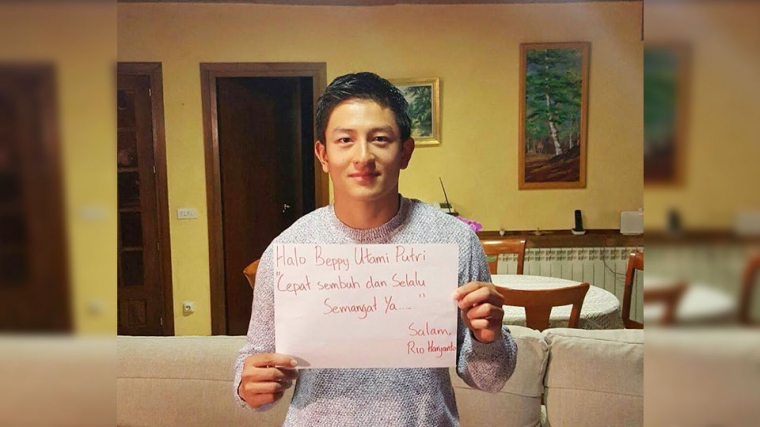 Halo Beppy Utami Putri
"Cepat sembuh dan Selalu
Semangat Ya...."
Salam,
Rio Haryanto